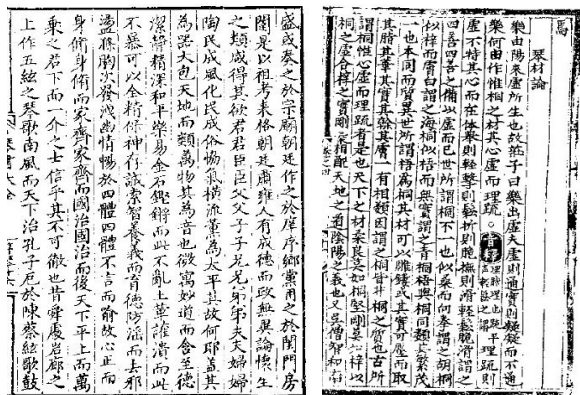 琴材論
樂由陽來虛所生也故莊子曰樂出虛夫虛則通實則礙礙而不通
樂何由作惟桐之材其心虛而理疏音釋理疏則
虛不特其心而在他琴則輕擊則鬆折則脆撫則滑輕鬆脆滑謂之
四善四善之備以虛而已世所謂桐不一也似桑而句拳謂之胡桐
似梓而膚謂之海桐似梧而無實謂之青桐梧與桐同類之繁茂
一也本同而質異世所謂梧為桐其材可以雕鏤或其實可壓而取
其脂其華其實其榦其膚一有相類因謂之桐皆非桐之質也古所
謂桐性心虛而理疏者是也天下之材柔良莫如桐堅剛莫如梓以
桐之虛合梓之實剛柔相配天地之道陰陽之義也又吳僧智和
盛或奏之於宗廟朝廷作之於庠序鄉黨用之於閨門房
闥是以祖考來格朝廷肅雍人有成德而政無異論懷生
之類咸得其欲君君臣臣父父子子兄兄弟弟夫夫婦婦
陶民成風化民成俗愉橫流薰為太平其故何耶蓋其
為器大包天地而類萬物其為音也微寓妙道而含至德
潔靜精深和平樂易金石鏗鏘而此不亂土革讙潰而此
不暴可以全精保神存誠索智養義而育德防淫而去邪
盪滌胸次發洩幽情暢於四體四體不言而喻故心正而
身脩身脩而家齊家齊而國治國治而後天下平上而萬
乘之君下而一介之士信乎其不可徹也昔舜處之
上作五絃之琴歌南風而天下治孔子厄於陳蔡絃歌鼓
琴書大全